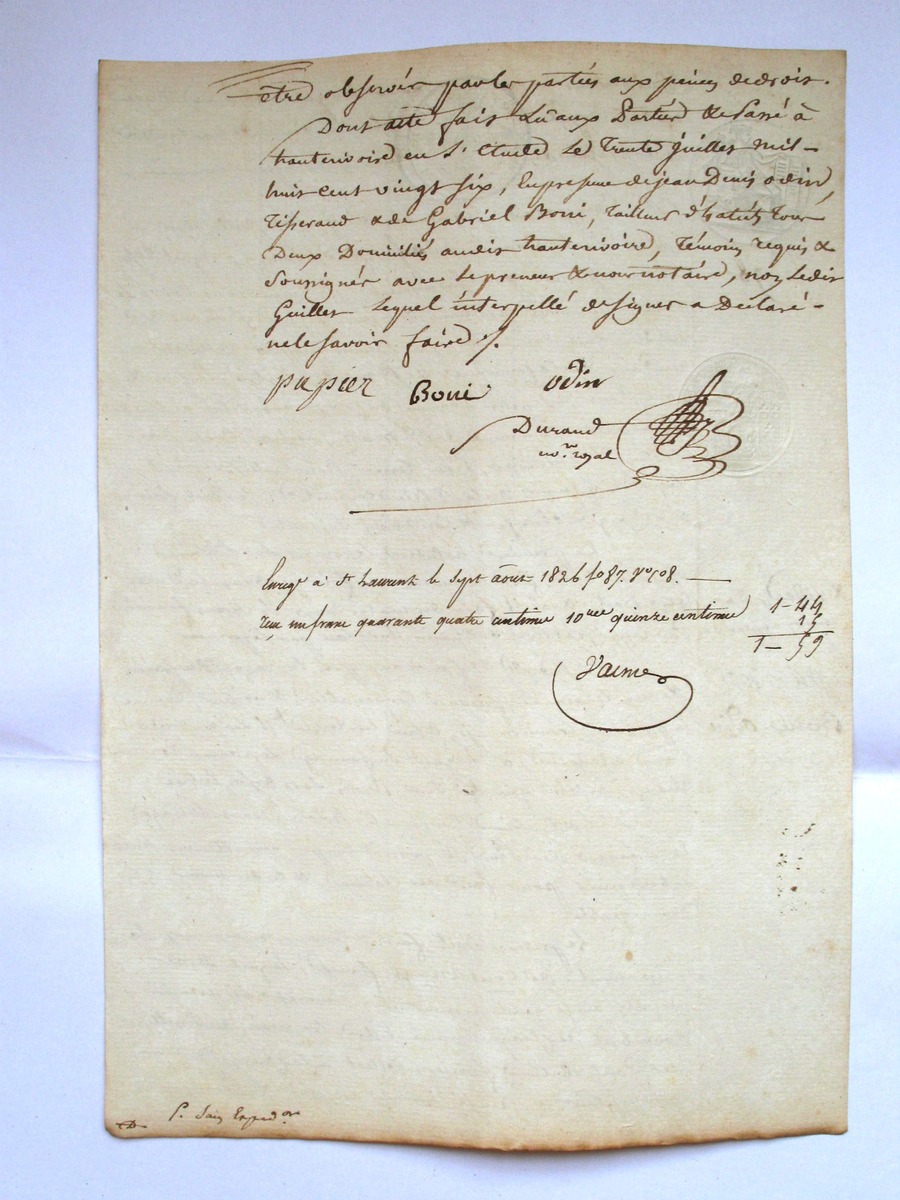 être observée par les parties aux peines de droit.
Dont acte fait Lû aux Parties & Passé à
hauterivoire en L'étude Le Trente juillet mil-
huit cent vingt six, En presence de jean Denis odin,
Tisserand & de Gabriel Boni, Tailleur d'habits, tous
Deux Domiciliés audit hauterivoire, Témoins requis &
Soussignés avec Le preneur & nous notaire, non Ledit
Guillet Lequel interpellé de signer a Déclaré-
ne le savoir faire ./.
papier Boni odin
Durand
no.re royal
Enregé à St Laurent le sept août 1826 fo 87. Vo c 8. —
reçu un franc quarante quatre centimes 10me quinze centimes 1-44
15
1-59